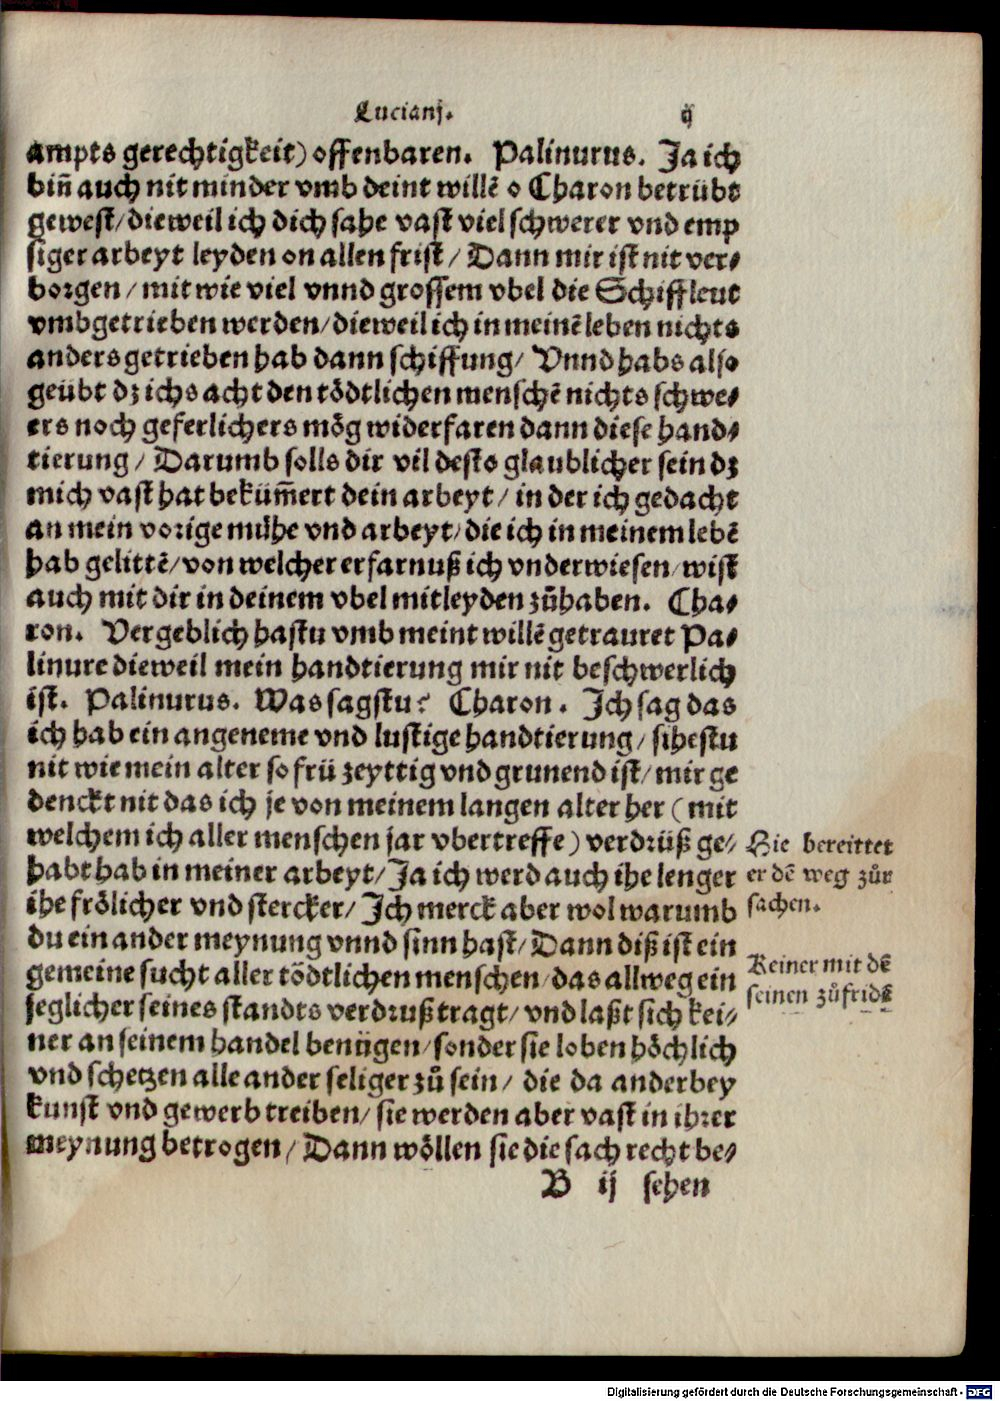 Luciani.
ampts gerechtigkeit) offenbaren. Palinurus. Ja ich
biñ auch nit minder vmb deint willē o Charon betrübt
gewest/ dieweil ich dich sahe vast viel schwerer vnd emp
siger arbeyt leyden on allen frist/ Dann mir ist nit ver⸗
borgen/ mit wie viel vnnd grossem vbel die Schiffleut
vmbgetrieben werden/ dieweil ich in meinē leben nichts
anders getrieben hab dann schiffung/ Vnnd habs also
geübt dz ichs acht den tödtlichen menschē nichts schwe⸗
ers noch geferlichers mög widerfaren dann diese hand⸗
tierung/ Darumb solls dir vil desto glaublicher sein dz
mich vast hat beküm̄ert dein arbeyt/ in der ich gedacht
an mein vorige mühe vnd arbeyt/ die ich in meinem lebē
hab gelittē/ von welcher erfarnuß ich vnderwiesen/ wist
auch mit dir in deinem vbel mitleyden zůhaben. Cha⸗
ron. Vergeblich hastu vmb meint willē getrauret Pa⸗
linure dieweil mein handtierung mir nit beschwerlich
ist. Palinurus. Was sagstu? Charon. Ich sag das
ich hab ein angeneme vnd lustige handtierung/ sihestu
nit wie mein alter so frü zeyttig vnd grunend ist/ mir ge
denckt nit das ich je von meinem langen alter her (mit
welchem ich aller menschen jar vbertreffe) verdrüß ge⸗
habt hab in meiner arbeyt/ Ja ich werd auch ihe lenger
ihe frölicher vnd stercker/ Ich merck aber wol warumb
du ein ander meynung vnnd sinn hast/ Dann diß ist ein
gemeine sucht aller tödtlichen menschen/ das allweg ein
jeglicher seines standts verdruß tragt/ vnd laßt sich kei⸗
ner an seinem handel benügen/ sonder sie loben höchlich
vnd schetzen alle ander seliger zů sein/ die da anderbey
kunst vnd gewerb treiben/ sie werden aber vast in ihrer
meynung betrogen/ Dann wöllen sie die sach recht be⸗
B ij sehen
Hie bereittet
er dē weg zůr
sachen.
Keiner mit dē
seinen zůfridē
Digitalisierung gefördert durch die Deutsche Forschungsgemeinschaft - DFG